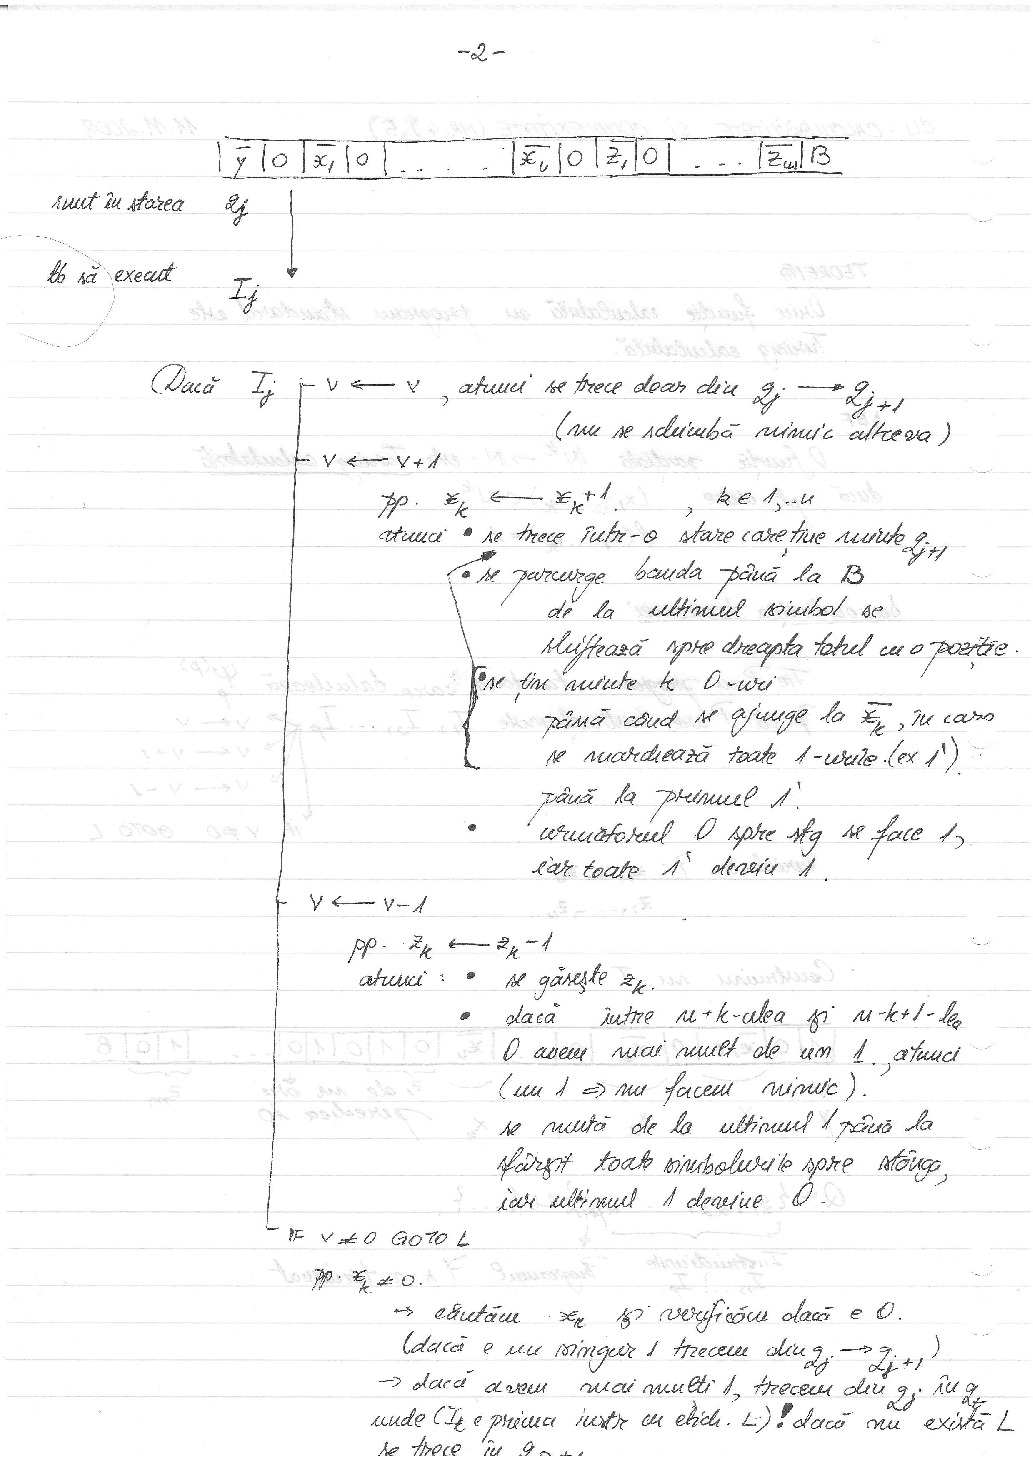 -2-
| ȳ | 0 | x̄₁ | 0 | . . . . . | x̄ₙ | 0 | z̄₁ | 0 | . . . | z̄ₘ | B
sunt în starea qⱼ
tb să execut Iⱼ
Dacă Iⱼ v ← v , atunci se trece doar din qⱼ → qⱼ₊₁
(nu se schimbă nimic altceva)
v ← v+1
pp. xₖ ← xₖ+1 , k ∈ 1,..n
atunci • se trece într-o stare care ține minte qⱼ₊₁
• se parcurge banda până la B
de la ultimul simbol se
shiftează spre dreapta totul cu o poziție.
• se țin minte k 0-uri
până când se ajunge la x̄ₖ, în care
se marchează toate 1-urile (ex 1')
până la primul 1'.
• următorul 0 spre stg se face 1,
iar toate 1' devin 1.
v ← v-1
pp. zₖ ← zₖ-1
atunci : • se găsește zₖ.
• dacă între n+k-ulea și n-k+1-lea
0 avem mai mult de un 1, atunci
(un 1 ⇒ nu facem nimic).
se mută de la ultimul 1 până la
sfârșit toate simbolurile spre stânga,
iar ultimul 1 devine 0.
IF v≠0 GOTO L
pp. xₖ ≠ 0.
→ căutăm xₖ și verificăm dacă e 0.
(dacă e un singur 1 trecem din qⱼ → qⱼ₊₁)
→ dacă avem mai mulți 1, trecem din qⱼ în qₜ
unde (Iₜ e prima instr cu etich. L)! dacă nu există L
se trece în